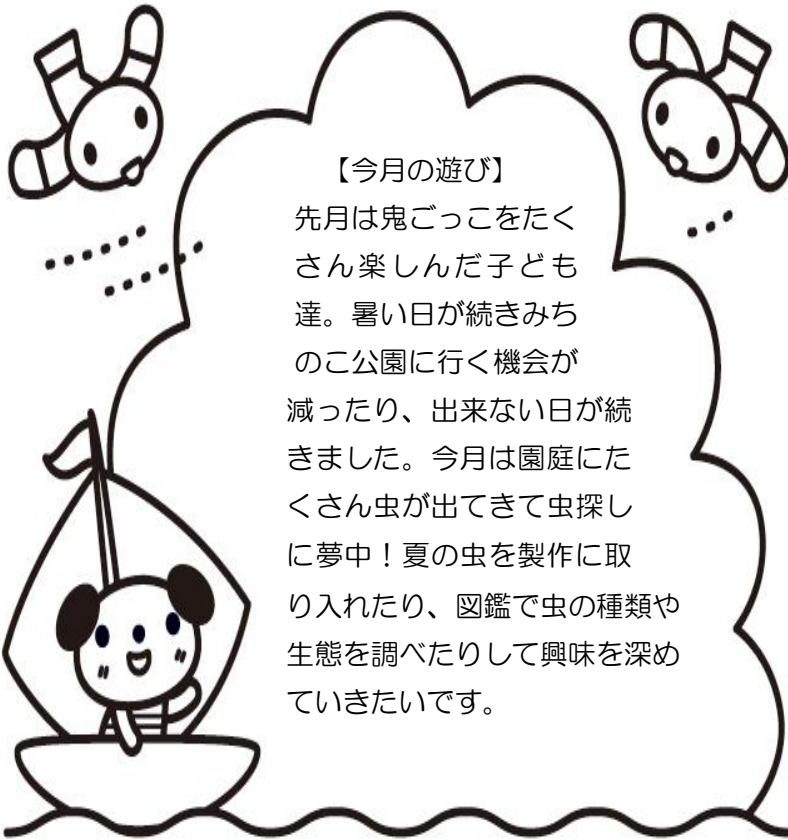 【今月の遊び】
先月は鬼ごっこをたく
さん楽しんだ子ども
達。暑い日が続きみち
のこ公園に行く機会が
減ったり、出来ない日が続
きました。今月は園庭にた
くさん虫が出てきて虫探し
に夢中！夏の虫を製作に取
り入れたり、図鑑で虫の種類や
生態を調べたりして興味を深め
ていきたいです。